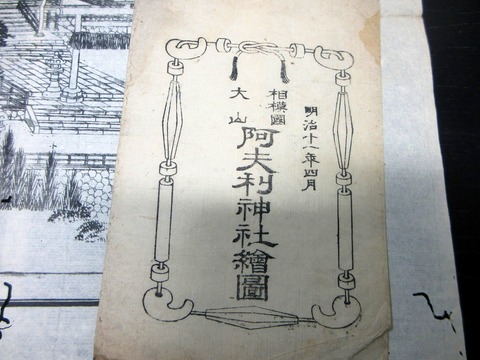 明治十一年四月
相模國
大山
阿夫利神社繪圖